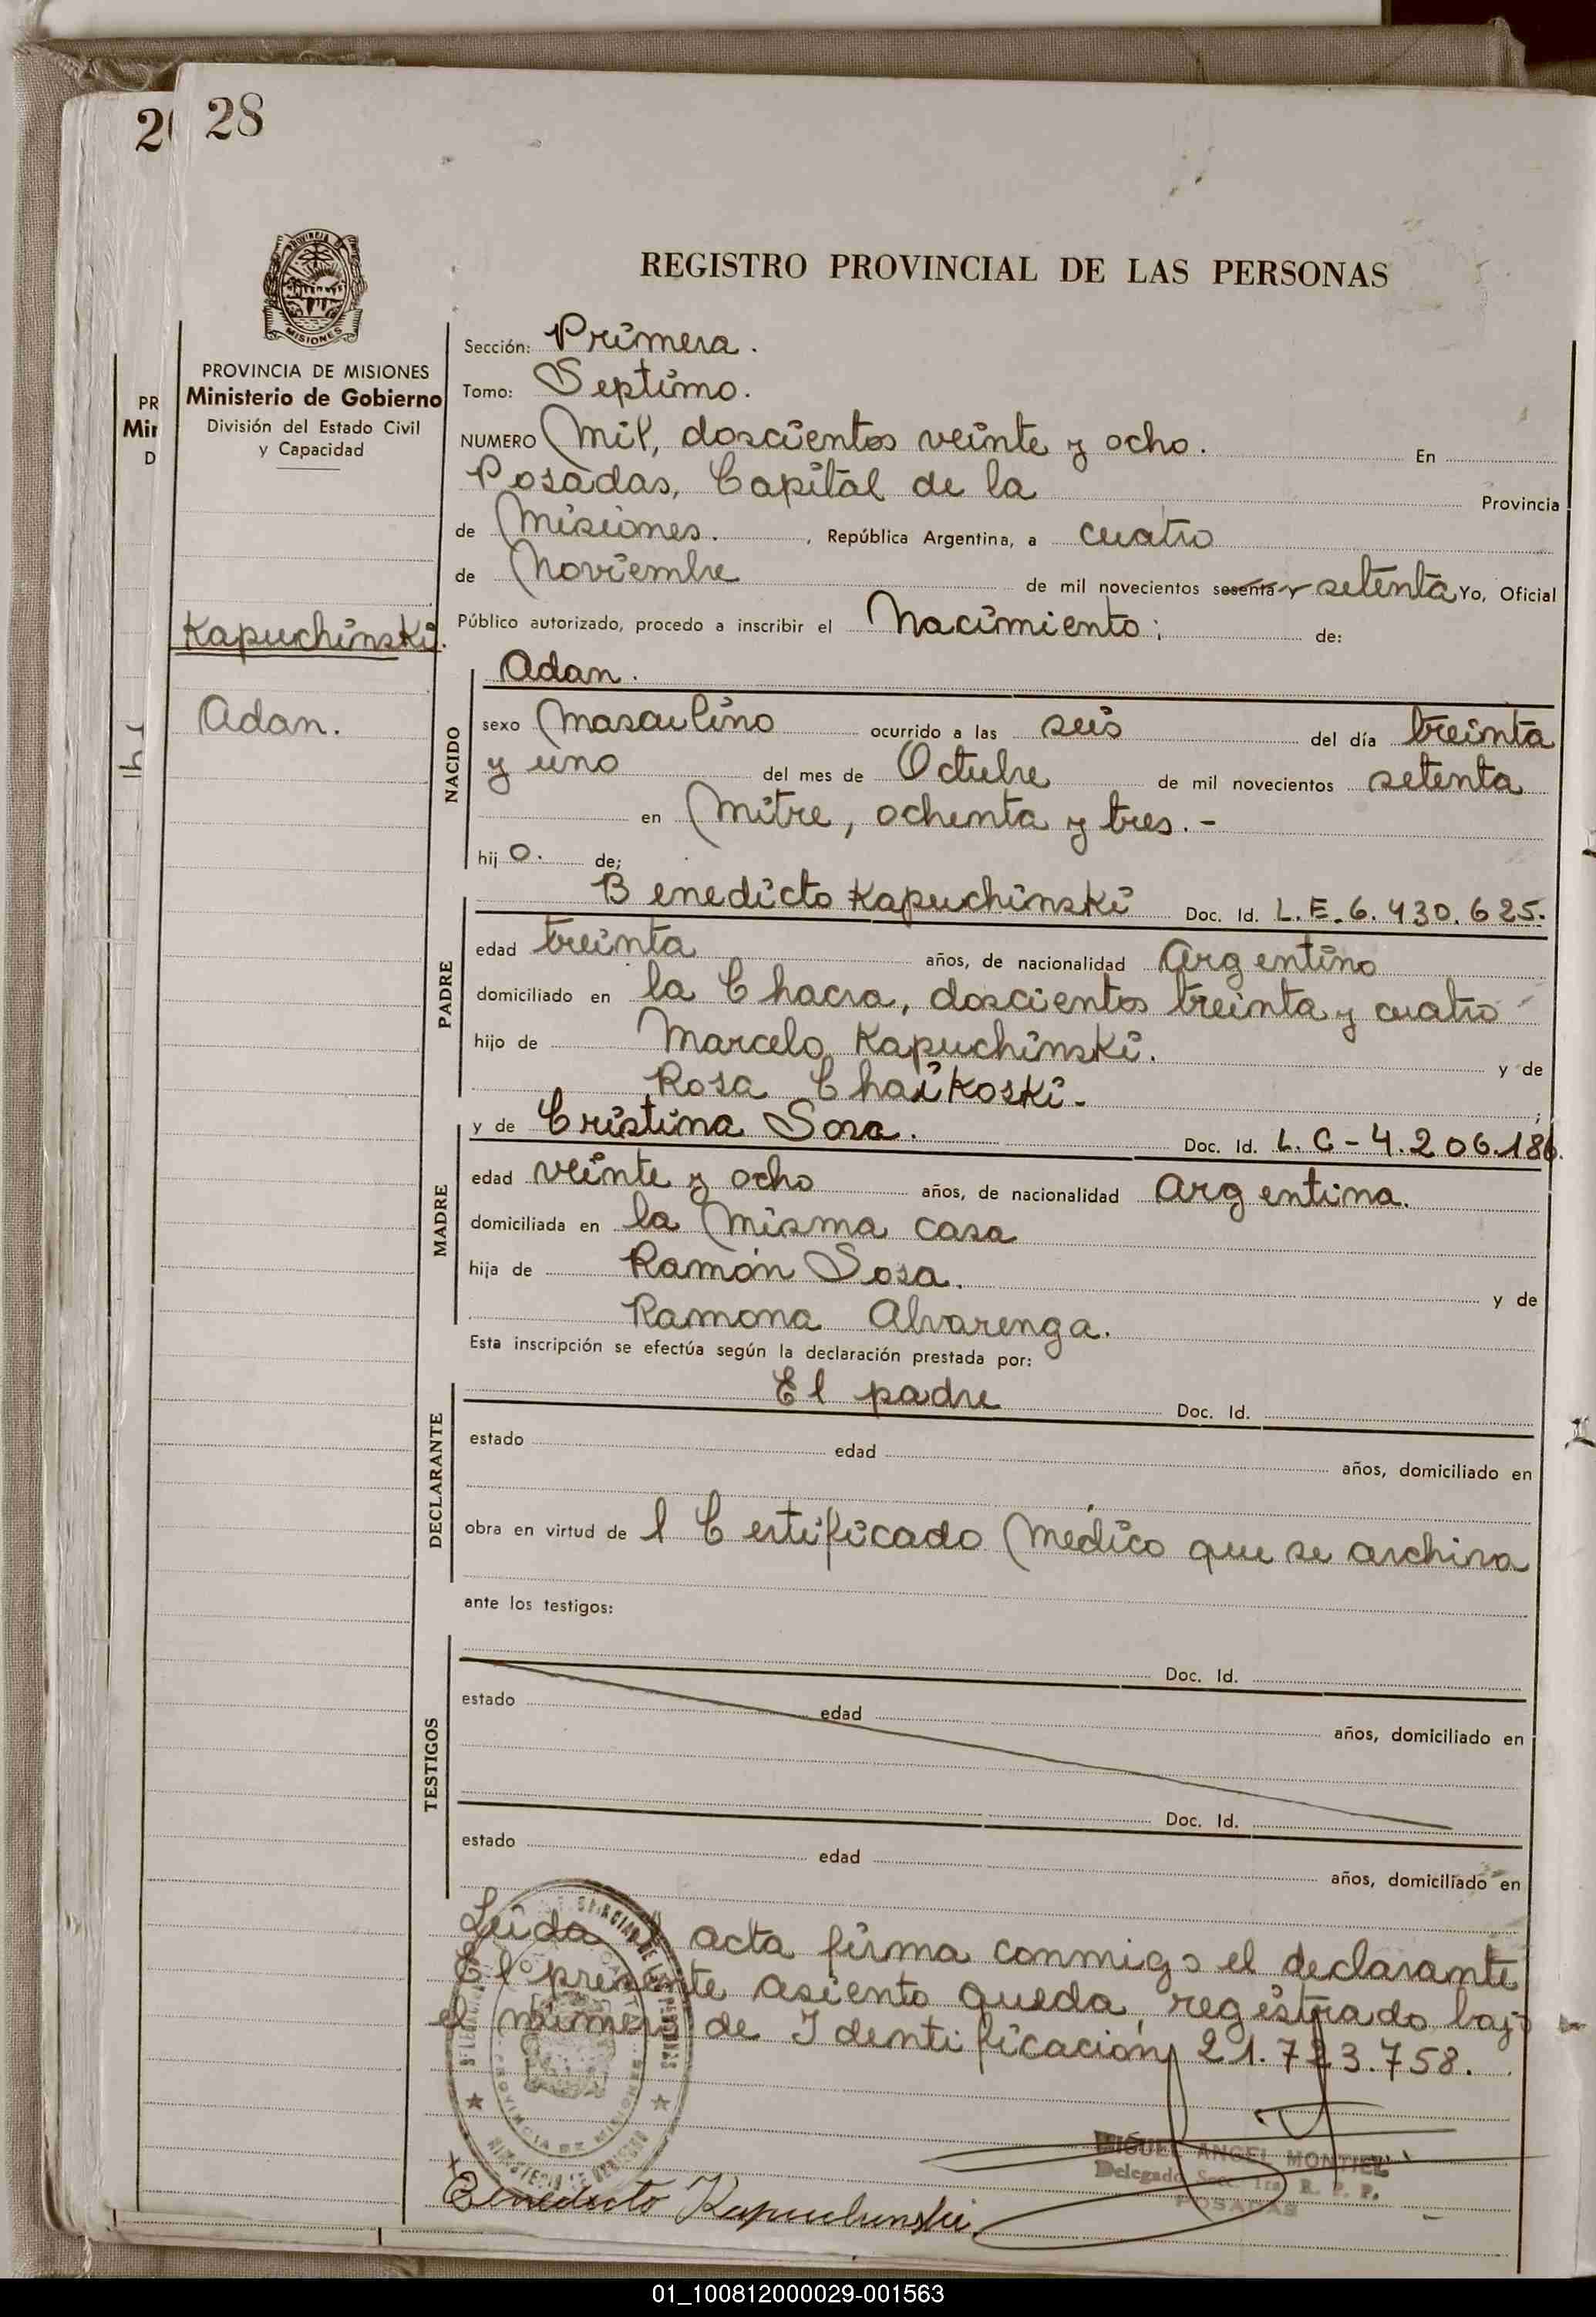 28
REGISTRO PROVINCIAL DE LAS PERSONAS
PROVINCIA DE MISIONES
Ministerio de Gobierno
División del Estado Civil
y Capacidad
Kapuchinski.
Adan.
Sección: Primera.
Tomo: Septimo.
NUMERO Mil, doscientos veinte y ocho. En
Posadas, Capital de la Provincia
de Misiones. , República Argentina, a cuatro
de Noviembre de mil novecientos sesenta y setenta Yo, Oficial
Público autorizado, procedo a inscribir el Nacimiento; de:
Adan.
NACIDO
sexo Masculino ocurrido a las seis del día treinta
y uno del mes de Octubre de mil novecientos setenta
en Mitre, ochenta y tres.-
hij o. de;
PADRE
Benedicto Kapuchinski Doc. Id. L.E. 6.430.625.
edad treinta años, de nacionalidad Argentino
domiciliado en la Chacra, doscientos treinta y cuatro
hijo de Marcelo Kapuchinski. y de
Rosa Chaikoski- ;
MADRE
y de Cristina Sosa. Doc. Id. L.C-4.206.186.
edad veinte y ocho años, de nacionalidad Argentina.
domiciliada en la misma casa
hija de Ramón Sosa. y de
Ramona Alvarenga.
Esta inscripción se efectúa según la declaración prestada por:
DECLARANTE
El padre Doc. Id.
estado edad años, domiciliado en
obra en virtud de l Certificado Médico que se archiva
ante los testigos:
TESTIGOS
Doc. Id.
estado edad años, domiciliado en
Doc. Id.
estado edad años, domiciliado en
Leida el acta firma conmigo el declarante
El presente asiento queda registrado bajo
el número de Identificación 21.723.758.
MIGUEL ANGEL MONTIEL
Delegado Sec. 1ra R. P. P.
POSADAS
Benedicto Kapuchinski
01_100812000029-001563